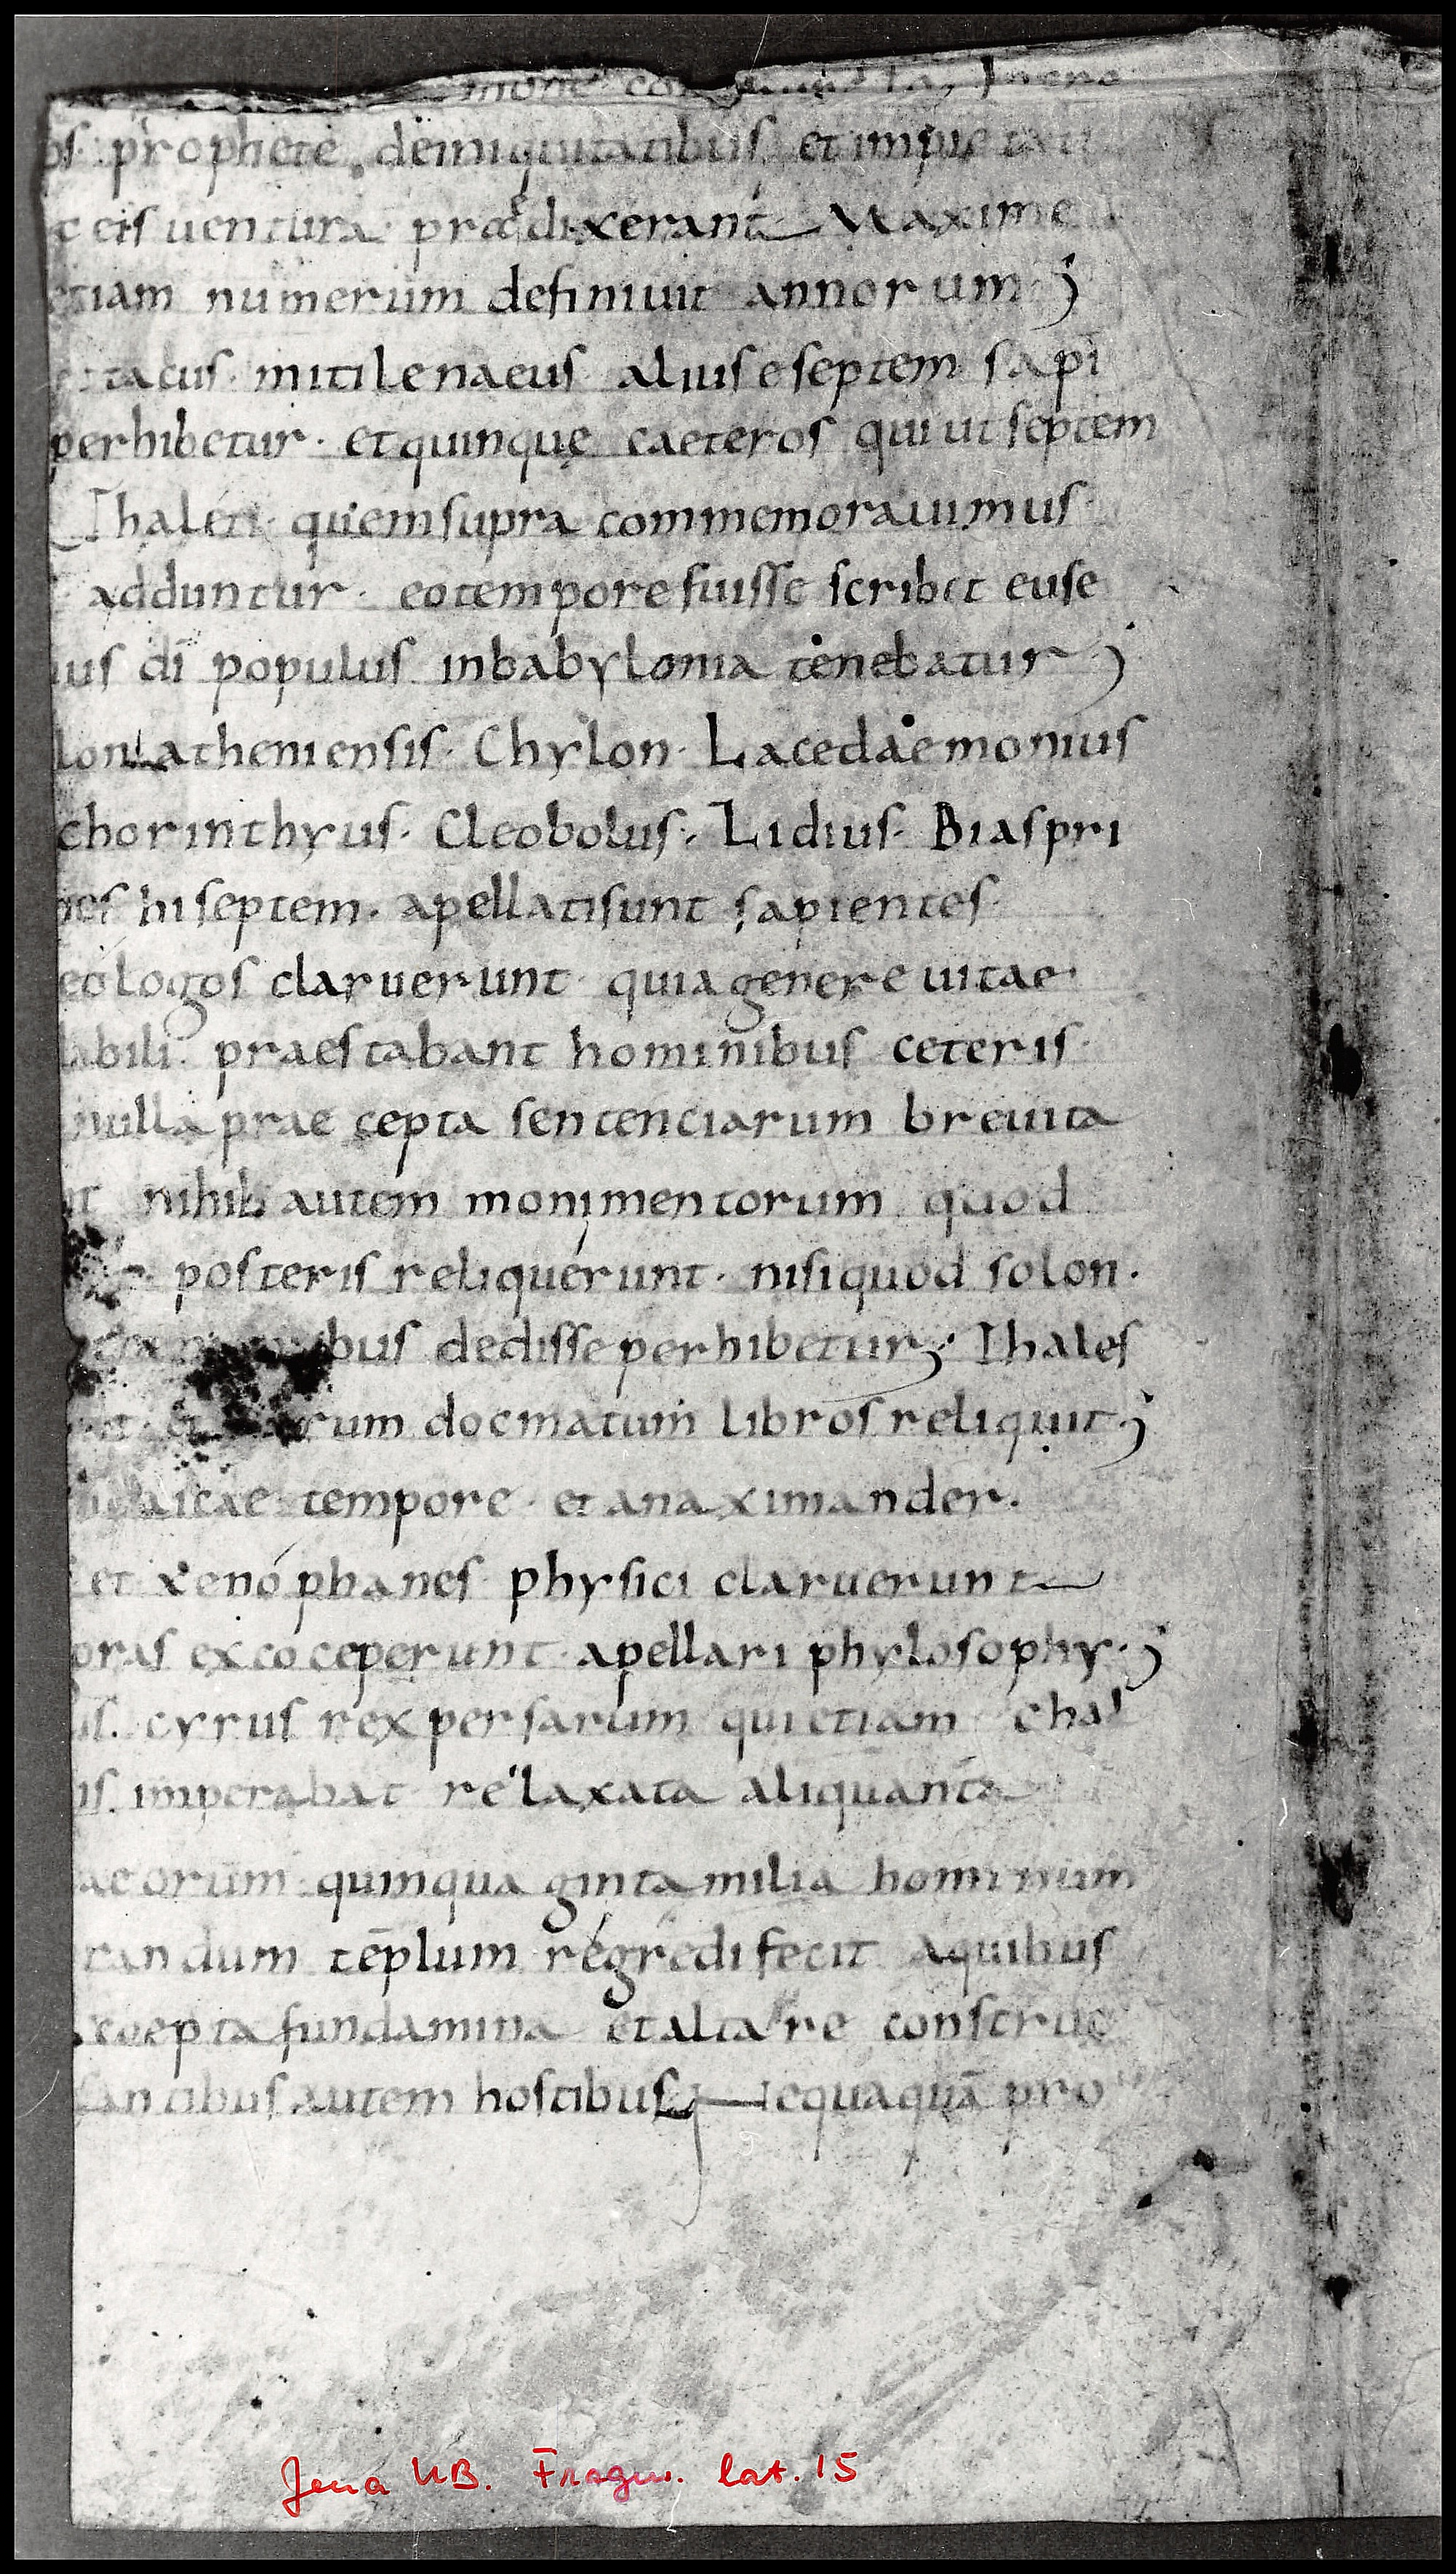 prophete. deiniquitatibus et impietati
eis uentura praedixerant Maxime
etiam numerum definiuit annorum;
mitilenaeus alius e septem sapi
perhibetur. et quinque caeteros qui ut septem
Thalen quem supra commemorauimus.
adduntur. eo tempore fuisse scribit euse
ius dī populus in babylonia tenebatur;
lon atheniensis. Chylon. Lacedaemonius
chorinthyus. Cleobolus. Lidius. Bias pri
nes hi septem. apellati sunt sapientes.
eologos claruerunt quia genere uitae
labili. praestabant hominibus ceteris.
nulla prae cepta sentenciarum breuita
nt nihil autem monimentorum quod
posteris reliquerunt. nisi quod solon.
bus dedisse perhibetur; Thales
rum docmatum libros reliquit;
iudaicae tempore. et anaximander.
et xenophanes physici claruerunt
oras ex co ceperunt. apellari phylosophy.;
us. cyrus rex persarum qui etiam chal
is. imperabat relaxata aliquanta
aeorum quinquaginta milia hominum
randum tēplum regredi fecit a quibus
coepta fundamina et altare construc
santibus autem hostibus Nequaquā pro
Jena UB. Fragm. lat. 15